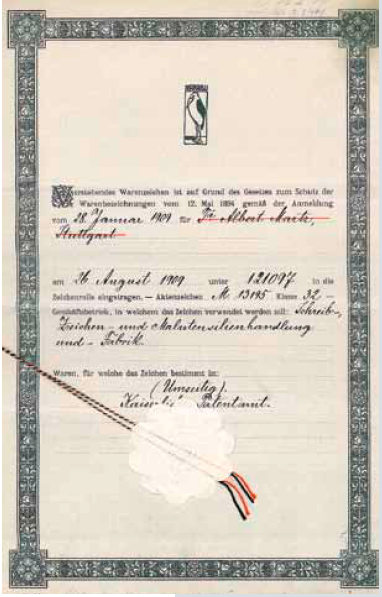 Vorstehendes Warenzeichen ist auf Grund des Gesetzes zum Schutz der
Warenbezeichnungen vom 12. Mai 1894 gemäß der Anmeldung
vom 28. Januar 1909 für Fa Albert Martz,
Stuttgart
am 26 August 1909 unter 121097 in die
Zeichenrolle eingetragen. — Aktenzeichen M 13195 Klasse 32 —
Geschäftsbetrieb, in welchem das Zeichen verwendet werden soll: Schreib-,
Zeichen- und Malutensilienhandlung
und -Fabrik.
Waren, für welche das Zeichen bestimmt ist:
(Umseitig).
Patentamt.